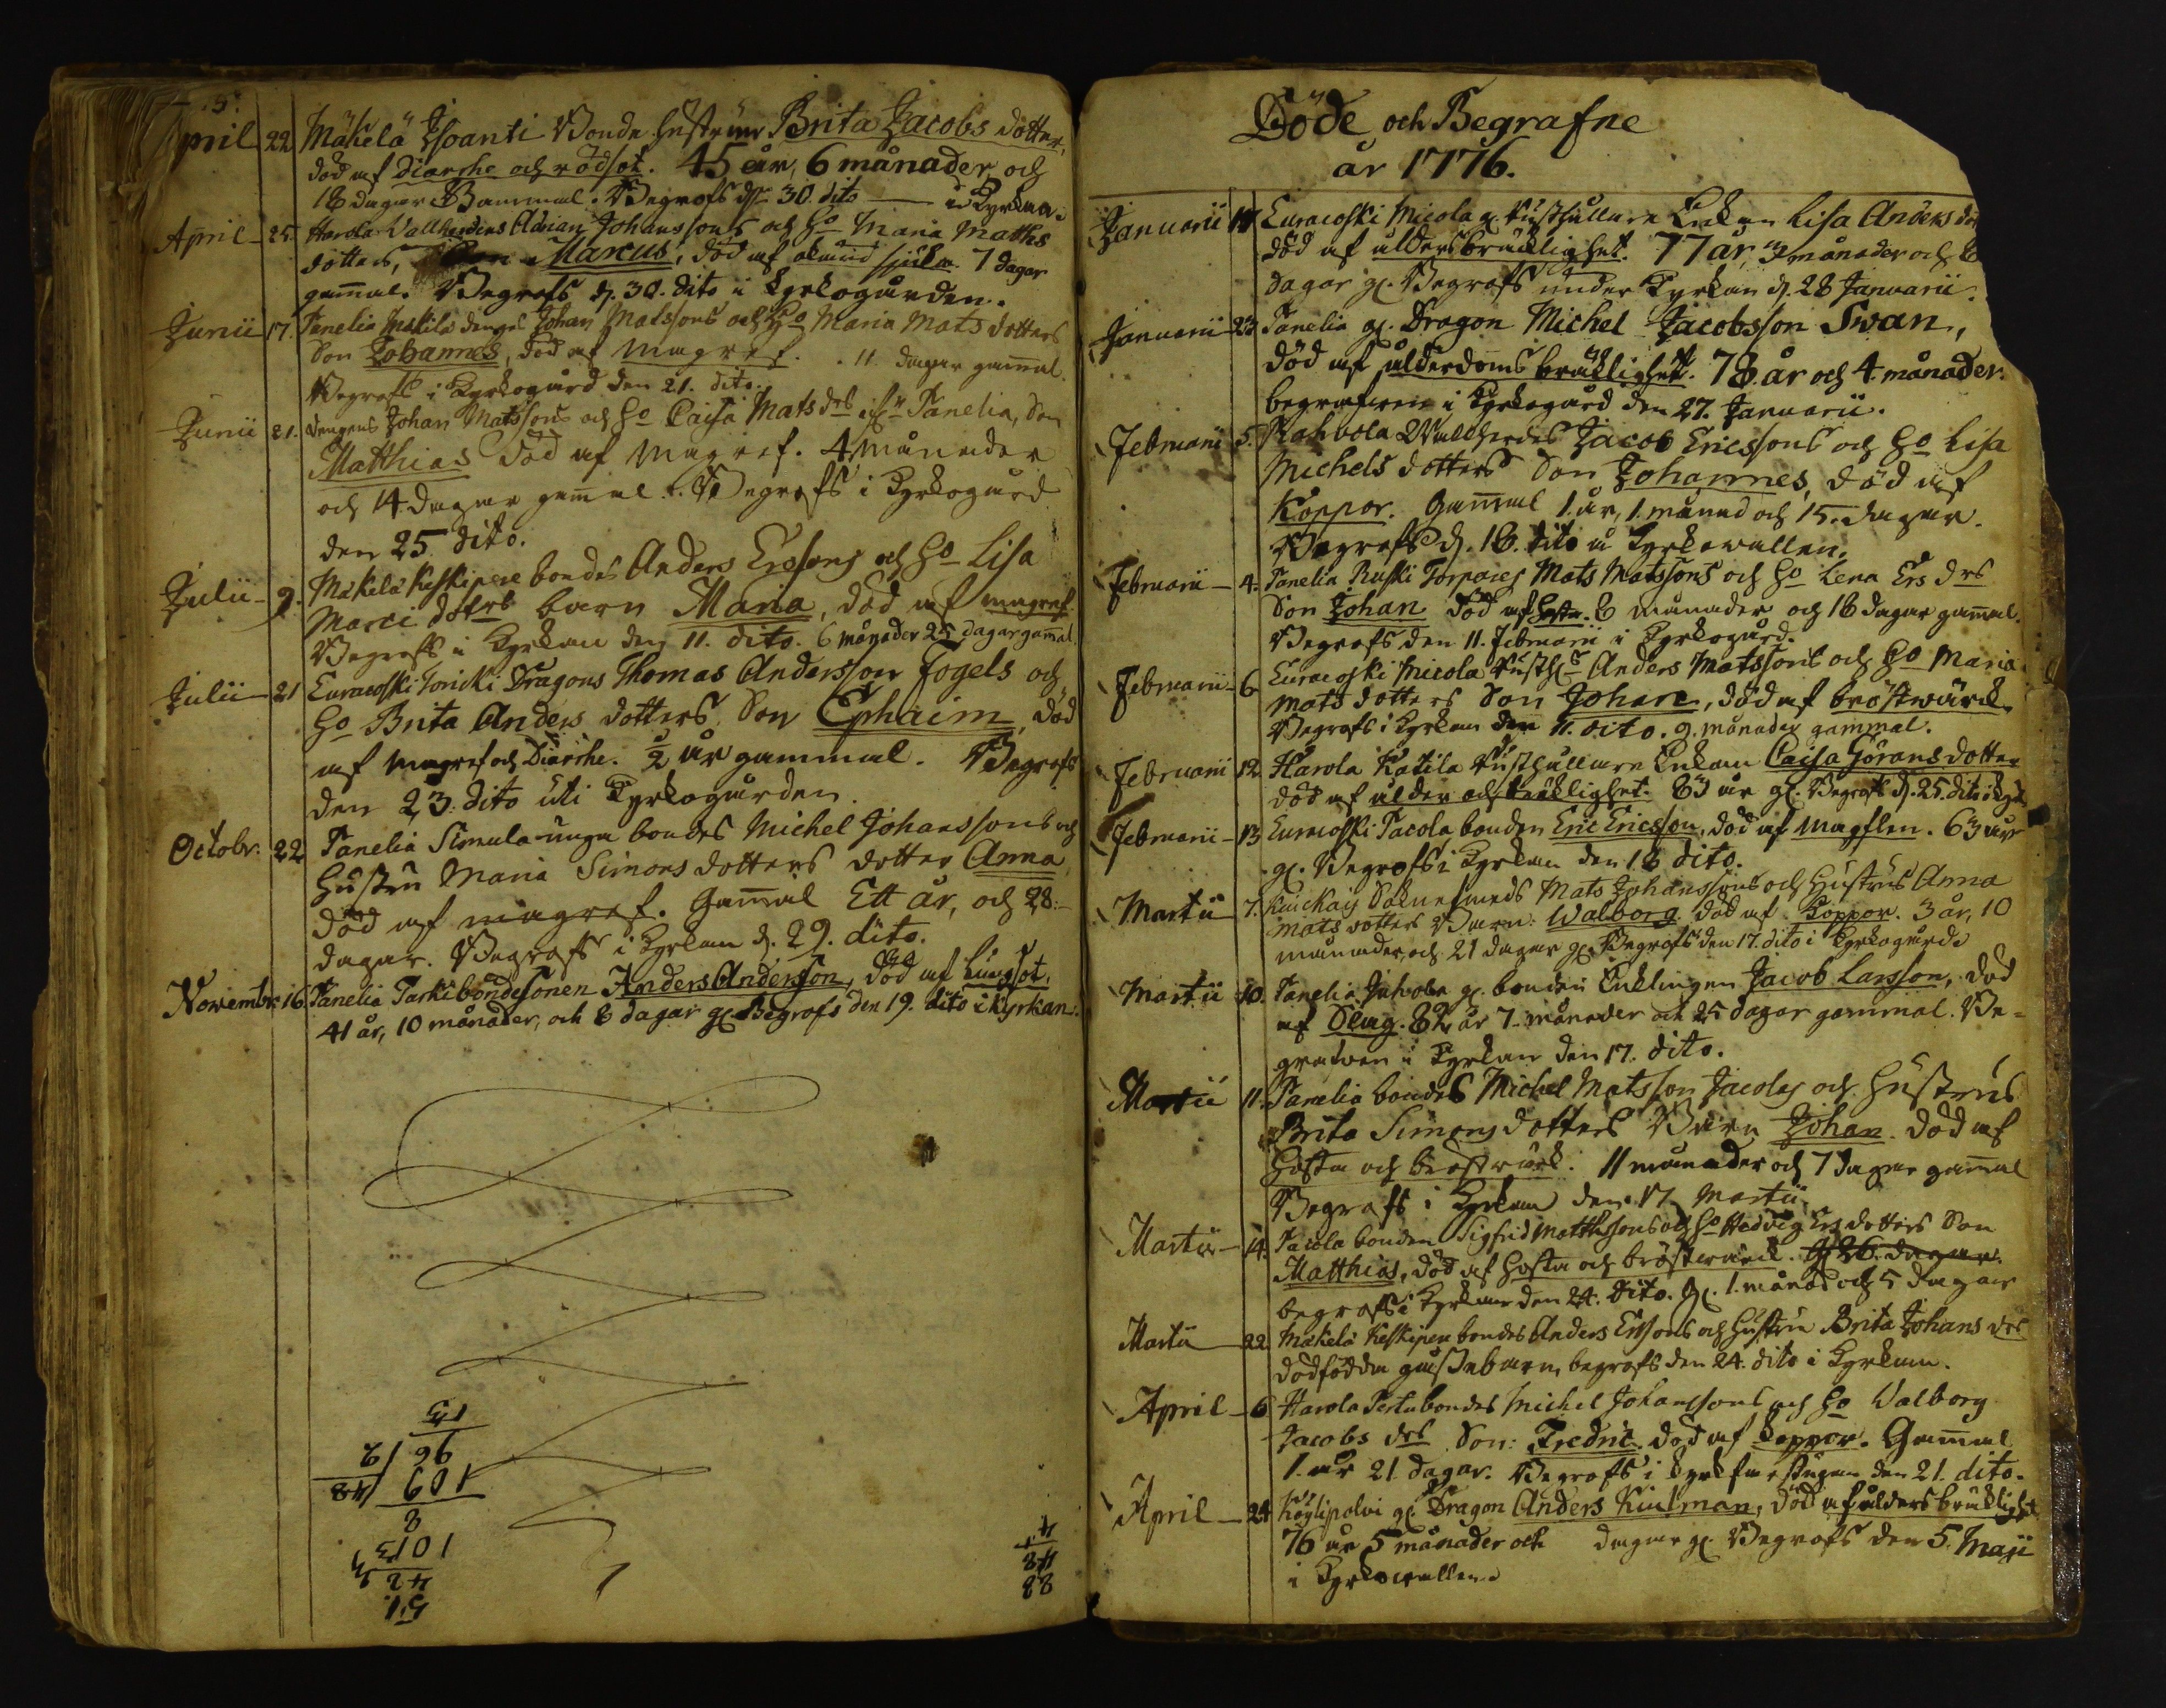 April 22 Mäkelä Isoanti Bonde hustrun Brita Jacobs dotter,
död af diarrhe och rödsot. 45 år, 6 månader och
18 dagar Gammal. Begrofs d. 30. dito — i Kyrkan.
April 25. Harola Vallherdens Adrian Johanssons och ho Maria Matths
dotters, Marcus, död af okiend siuka 7 dagar
gam̄al. Begrofs d. 30. dito i Kyrkogården.
Junii 17. Panelia Mälilä drengs Johan Matssons och ho Maria Mats dotters
Son Johannes, död af magref. 11. dagar gam̄al.
Begrofs i Kyrkogård den 21. dito.
Junii 21. drengens Johan Matssons och ho Caisa Mats drs ifrn Panelia, Son
Matthias död af magref. 4 månader
och 14 dagar gam̄al. Begrofs i Kyrkogård
den 25. dito.
Julii 9. Mäkelä Keskipere bondes Anders Erssons och ho Lisa
Marci dotrs barn Maria, död af magref.
Begrofs i Kyrkan den 11. dito. 6 månader 25 dagar gam̄al
Julii 21 Euraioski Dragons Thomas Andersson Fogels och
ho Brita Anders dotters Son Ephraim, död
af magref och Diarrhe. ½ år gammal. Begrofs
den 23. dito uti Kyrkogården.
Octobr. 22 Panelia Simula unga bondes Michel Johanssons och
hustru Maria Simons dotters dotter Anna
död af magref. Gam̄al Ett år, och 28.
dagar. Begrofs i Kyrkan d. 29. dito.
Novembr. 16. Panelia Tarki bondesonen Anders Andersson, död af Lungsot.
41 år, 10 månader, och 8 dagar gl. Begrofs den 19. dito i Kyrkan.
13
96 | 2
109 | 48
8
1013
42
51
4
48
88
Döde och Begrafne
år 1776.
Januarii Euraioski Micola gl. Rusthållare Enkan Lisa Anders
död af ålders bräcklighet. 77 år, 3 månader och 8
dagar gl. Begrofs under Kyrkan d. 28 Januarii.
Januarii 23 Panelia gl. Dragon Michel Jacobsson Swan,
död af ålderdoms bräklighet. 78. år och 4. månader.
begrafven i Kyrkogård den 27. Januarii.
Februarii 5. Kahvola Wallherdes Jacob Ericssons och ho Lisa
Michels dotters Son Johannes, död af
Koppor. Gam̄al 1. år, 1. månad och 15. dagar.
Begrofs d. 18. dito å Kyrkowallen.
Februarii 4. Panelia Ruski Torpares Mats Matssons och ho Lena Ers drs
Son Johan död af hosta. 8 månader och 18 dagar gam̄al.
Begrofs den 11. Februarii i Kyrkogård.
Februarii 6 Euraioski Micola Rusth. Anders Matssons och ho Maria
Mats dotters Son Johan, död af bröstwärck
Begrofs i Kyrkan den 11. dito. 9. månader gammal.
Februarii 12. Harola Katila Rusthållare Enkan Caisa Görans dotter
död af ålder och bräklighet. 83 år gl. Begrofs d. 25. dito i
Februarii 13 Euraioski Tacola bonden Eric Ericsson, död af magplen. 63 år
gl. Begrofs i Kyrkan den 18 dito.
Martii 7. Mats Johanssons och hustrus Anna
Mats dotters Barn: Walborg död af Koppor. 3 år, 10
månader och 21 dagar gl. Begrofs den 17. dito i Kyrkogård.
Martii 10. Panelia Juhola gl. bonden Enklingen Jacob Larsson, död
af Slag. 82 år 7. månader och 25 dagar gammal. Be-
grafven i Kyrkan den 17. dito.
Martii 11. Panelia bondes Michel Matsson Jacolas och hustrus
Brita Simons dotters Barn Johan. död af
hosta och bröstwärck. 11 månader och 7 dagar gam̄al
Begrofs i Kyrkan den. 17 Martii.
Martii 14. Tacola bonden Sigfrid Matthssons och ho Hedvig Ers dotters Son
Matthias, död af hosta och bröstwärck. gl 26. dagar.
begrofs i Kyrkan den 24. dito. gl. 1. månad och 5 dagar
Martii 22 Mäkelä Keskipere bondes Anders Erssons och hustru Brita Johans drs
dödfödda gossebarn begrofs den 24. dito i Kyrkan.
April 6 Harola Pertu bondes Michel Johanssons och ho Valborg
Jacobs drs Son: Fredric död af koppor. Gam̄al
1. år 21. dagar. Begrofs i den 21. dito.
April 24 Köylipolvi gl. Dragon Anders Kiulman, död af ålders bräklighet
76 år 5 månader och dagar gl. Begrofs den 5. Maji
i Kyrkowallen.